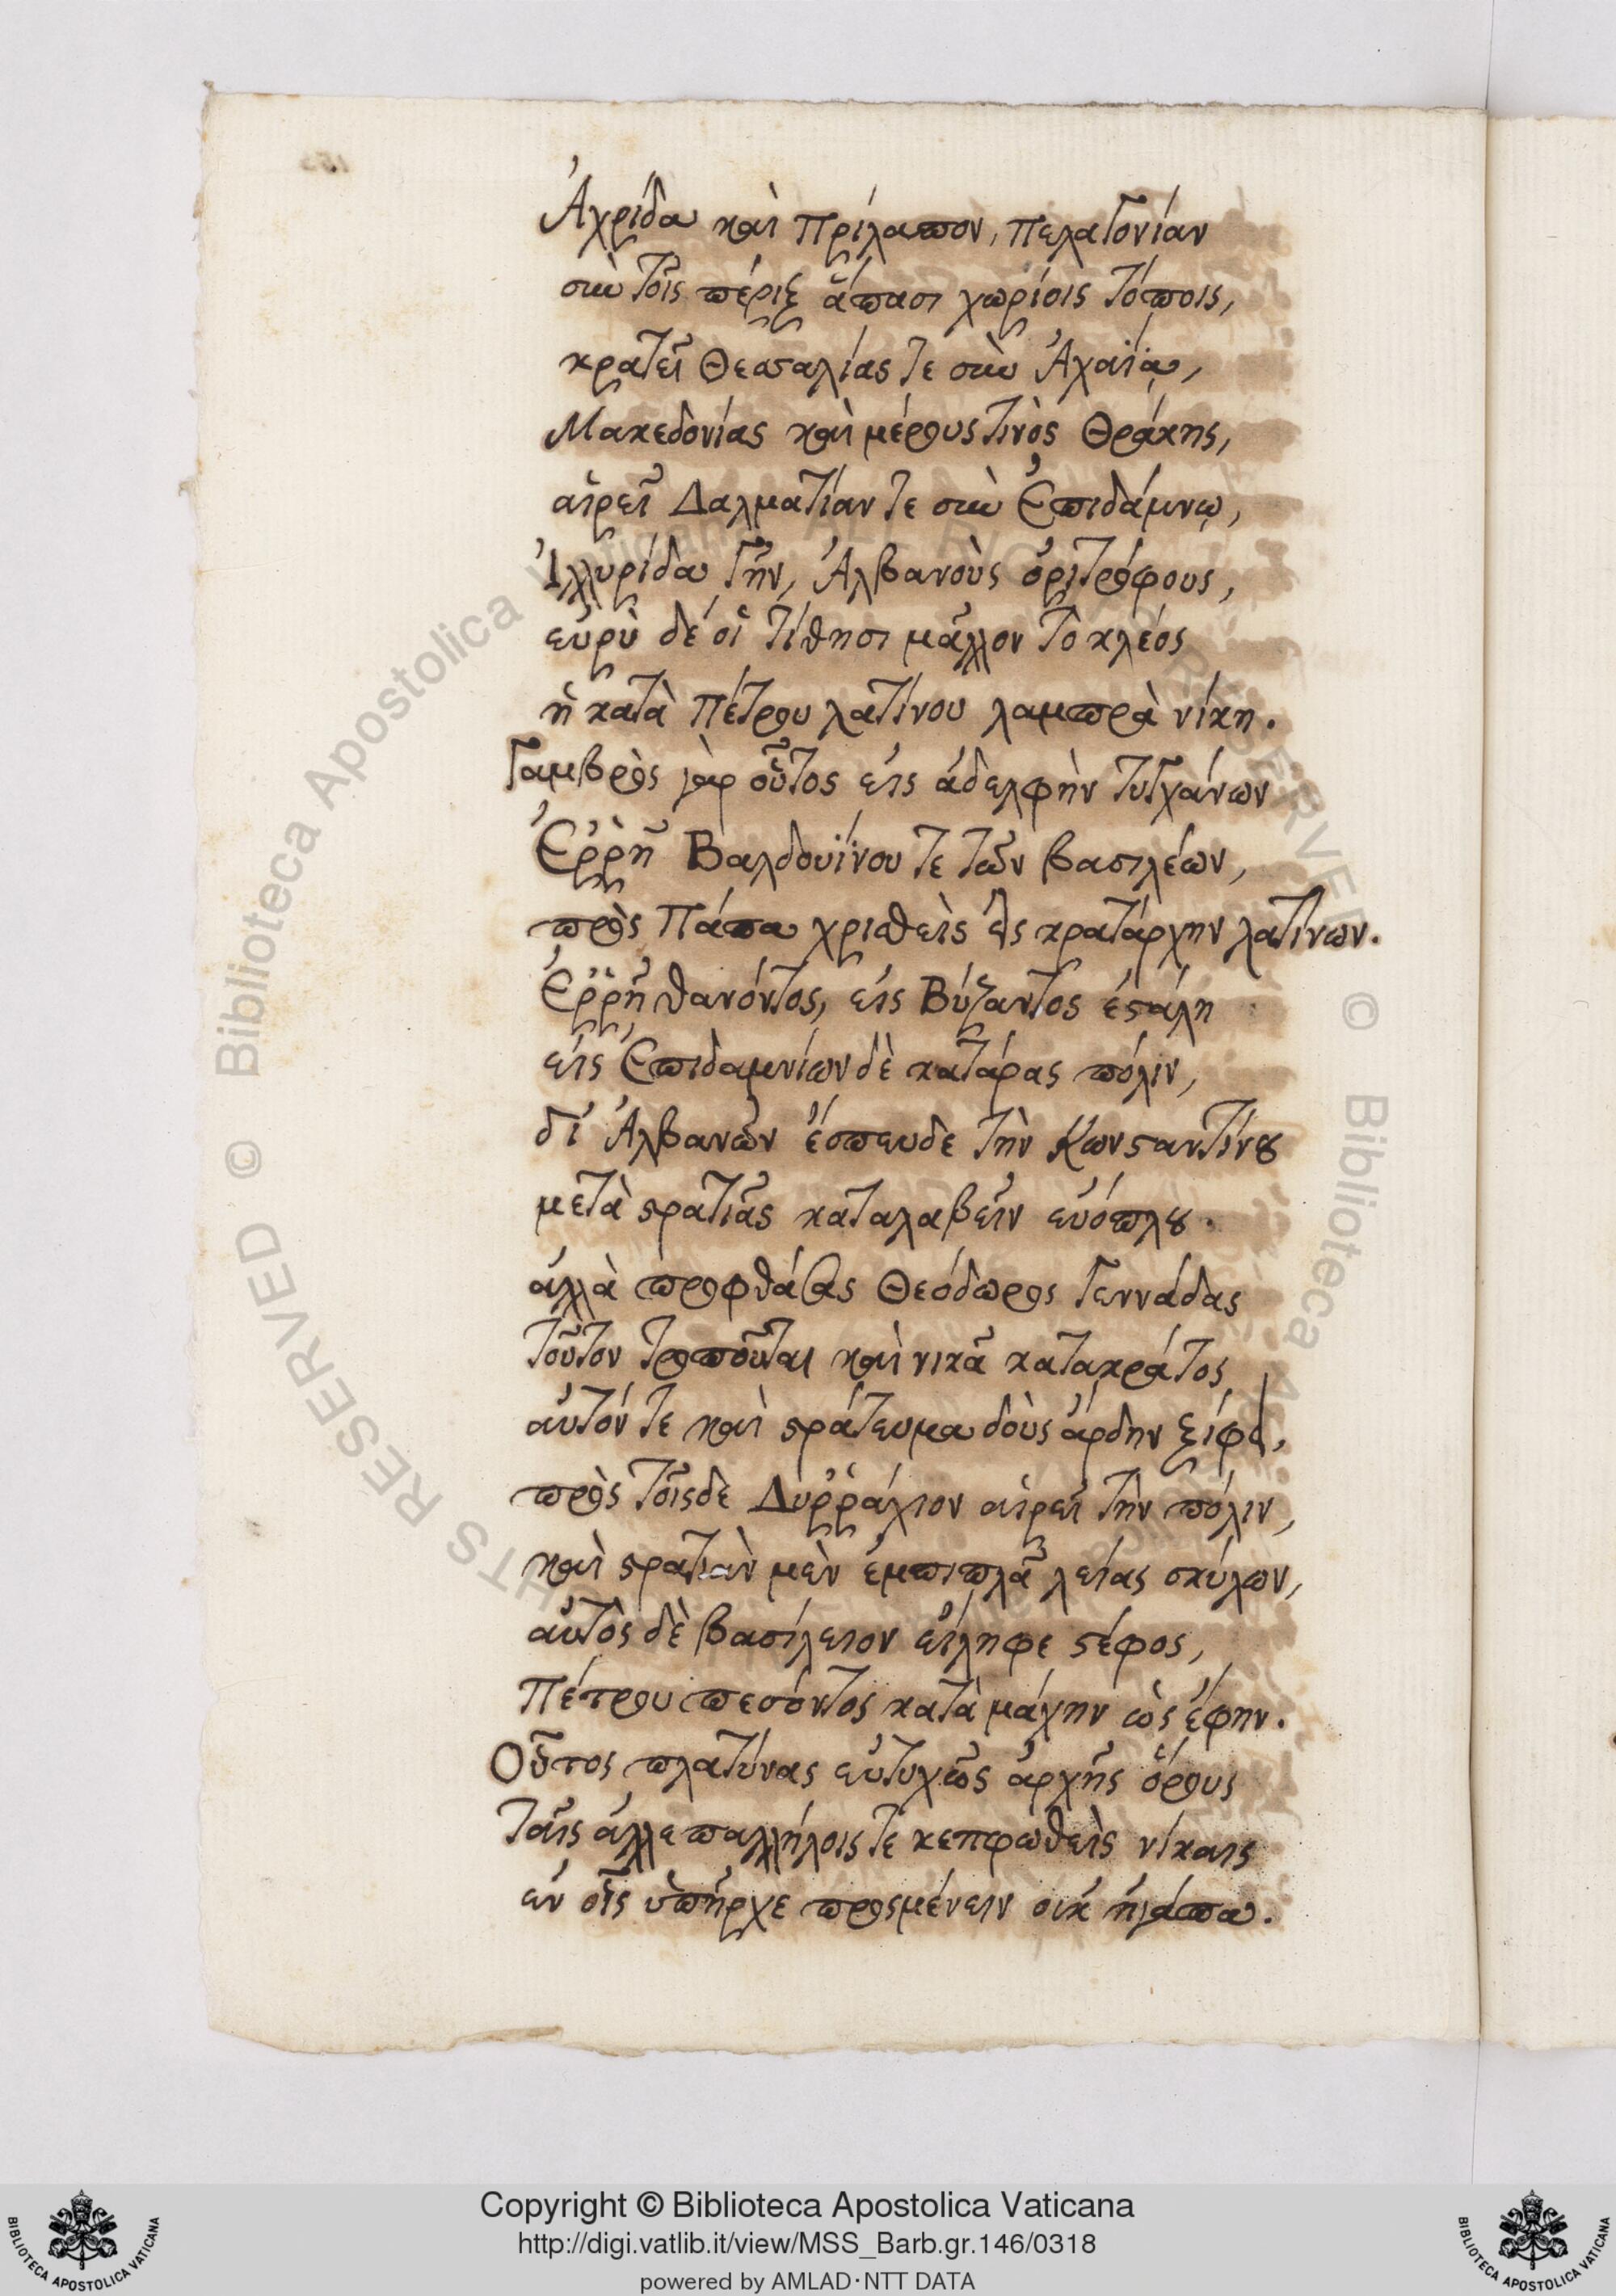 Ἀχρίδα καὶ Πρίλαπον, Πελαγονίαν
σὺν τοῖς πέριξ ἅπασι χωρίοις τόποις,
κρατεῖ Θεσσαλίας τε σὺν Ἀχαΐα,
Μακεδονίας καὶ μέρους τινὸς Θράκης,
αἱρεῖ Δαλματίαν τε σὺν Ἐπιδάμνῳ,
Ἰλλυρίδα γῆν, Ἀλβανοὺς ὀριτρόφους,
εὐρὺ δέ οἱ τίθησι μᾶλλον τὸ κλέος
ἡ κατὰ Πέτρου λατίνου λαμπρὰ νίκη.
Γαμβρὸς γὰρ οὗτος εἰς ἀδελφὴν τυγχάνων
Ἐῤῥῆ Βαλδουΐνου τε τῶν βασιλέων,
πρὸς Πάπα χρισθεὶς εἰς κρατάρχην λατίνων.
Ἐῤῥῆ θανόντος, εἰς Βύζαντος ἐστάλη
εἰς Ἐπιδαμνίων δὲ κατάρας πόλιν,
δι' Ἀλβανῶν ἔσπευδε τὴν Κωνσταντίνου
μετὰ στρατιᾶς καταλαβεῖν εὐόπλου.
ἀλλὰ προφθάσας Θεόδωρος Γεννάδας
τοῦτον τροποῦται καὶ νικᾶ κατακράτος
αὐτόν τε καὶ στράτευμα δοὺς ἄρδην ξίφει,
πρὸς τοῖσδε Δυῤῥάχιον αἱρεῖ τὴν πόλιν,
καὶ στρατιὰν μὲν ἐμπιπλᾶ λείας σκύλων,
αὐτὸς δὲ βασίλειον εἴληφε στέφος,
Πέτρου πεσόντος κατὰ μάχην ὡς ἔφην.
Οὗτος πλατύνας εὐτυχῶς ἀρχῆς ὅρους
ταῖς ἀλλεπαλλήλοις τε κεπφωθεὶς νίκαις
ἐν οἷς ὑπῆρχε προσμένειν οὐκ ἠγάπα.
Copyright © Biblioteca Apostolica Vaticana
http://digi.vatlib.it/view/MSS_Barb.gr.146/0318
powered by AMLAD·NTT DATA